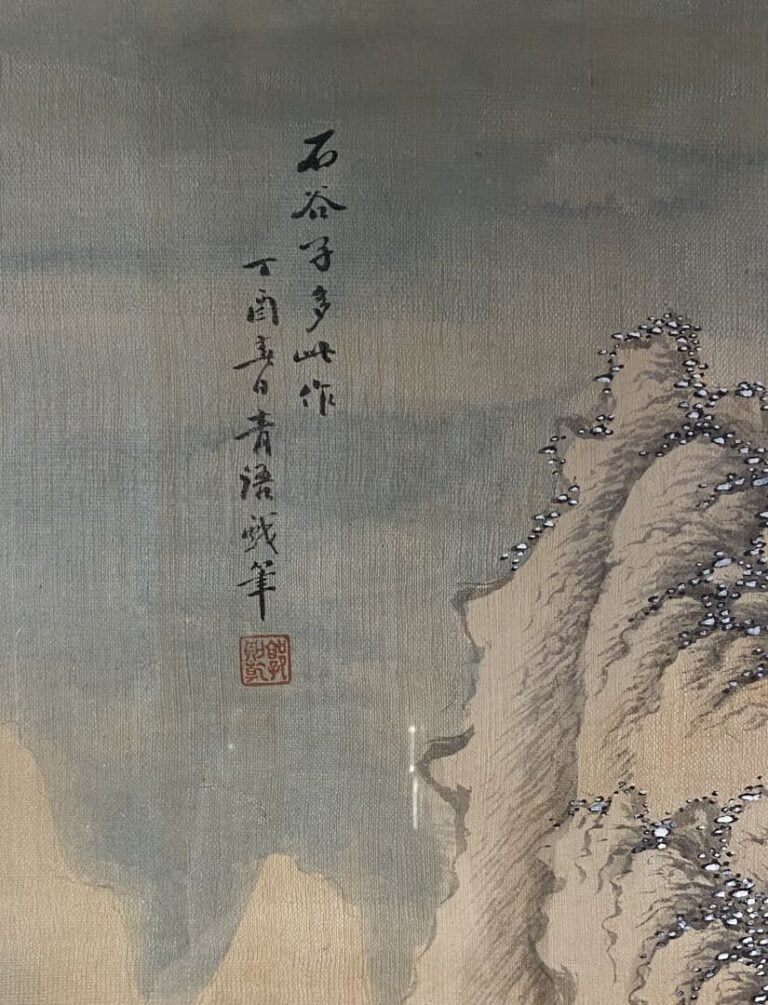 石谷子多此作
丁酉春日青語戲筆